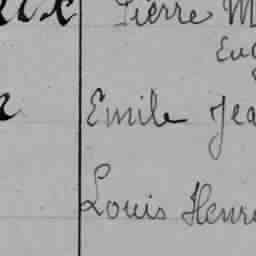 Pierre M
Eug
Emile Jea
Louis Henri